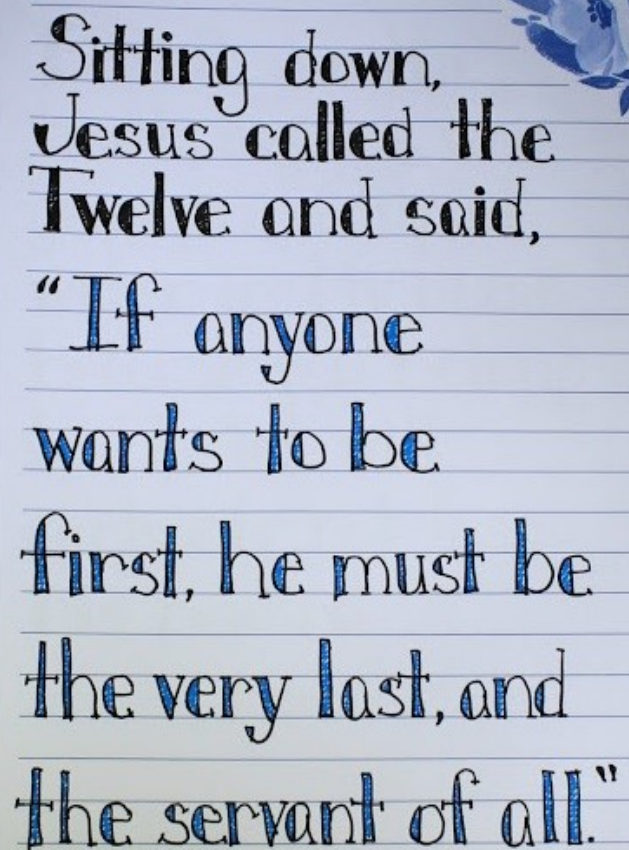 Sitting down,
Jesus called the
Twelve and said,
“If anyone
wants to be
first, he must be
the very last, and
the servant of all."